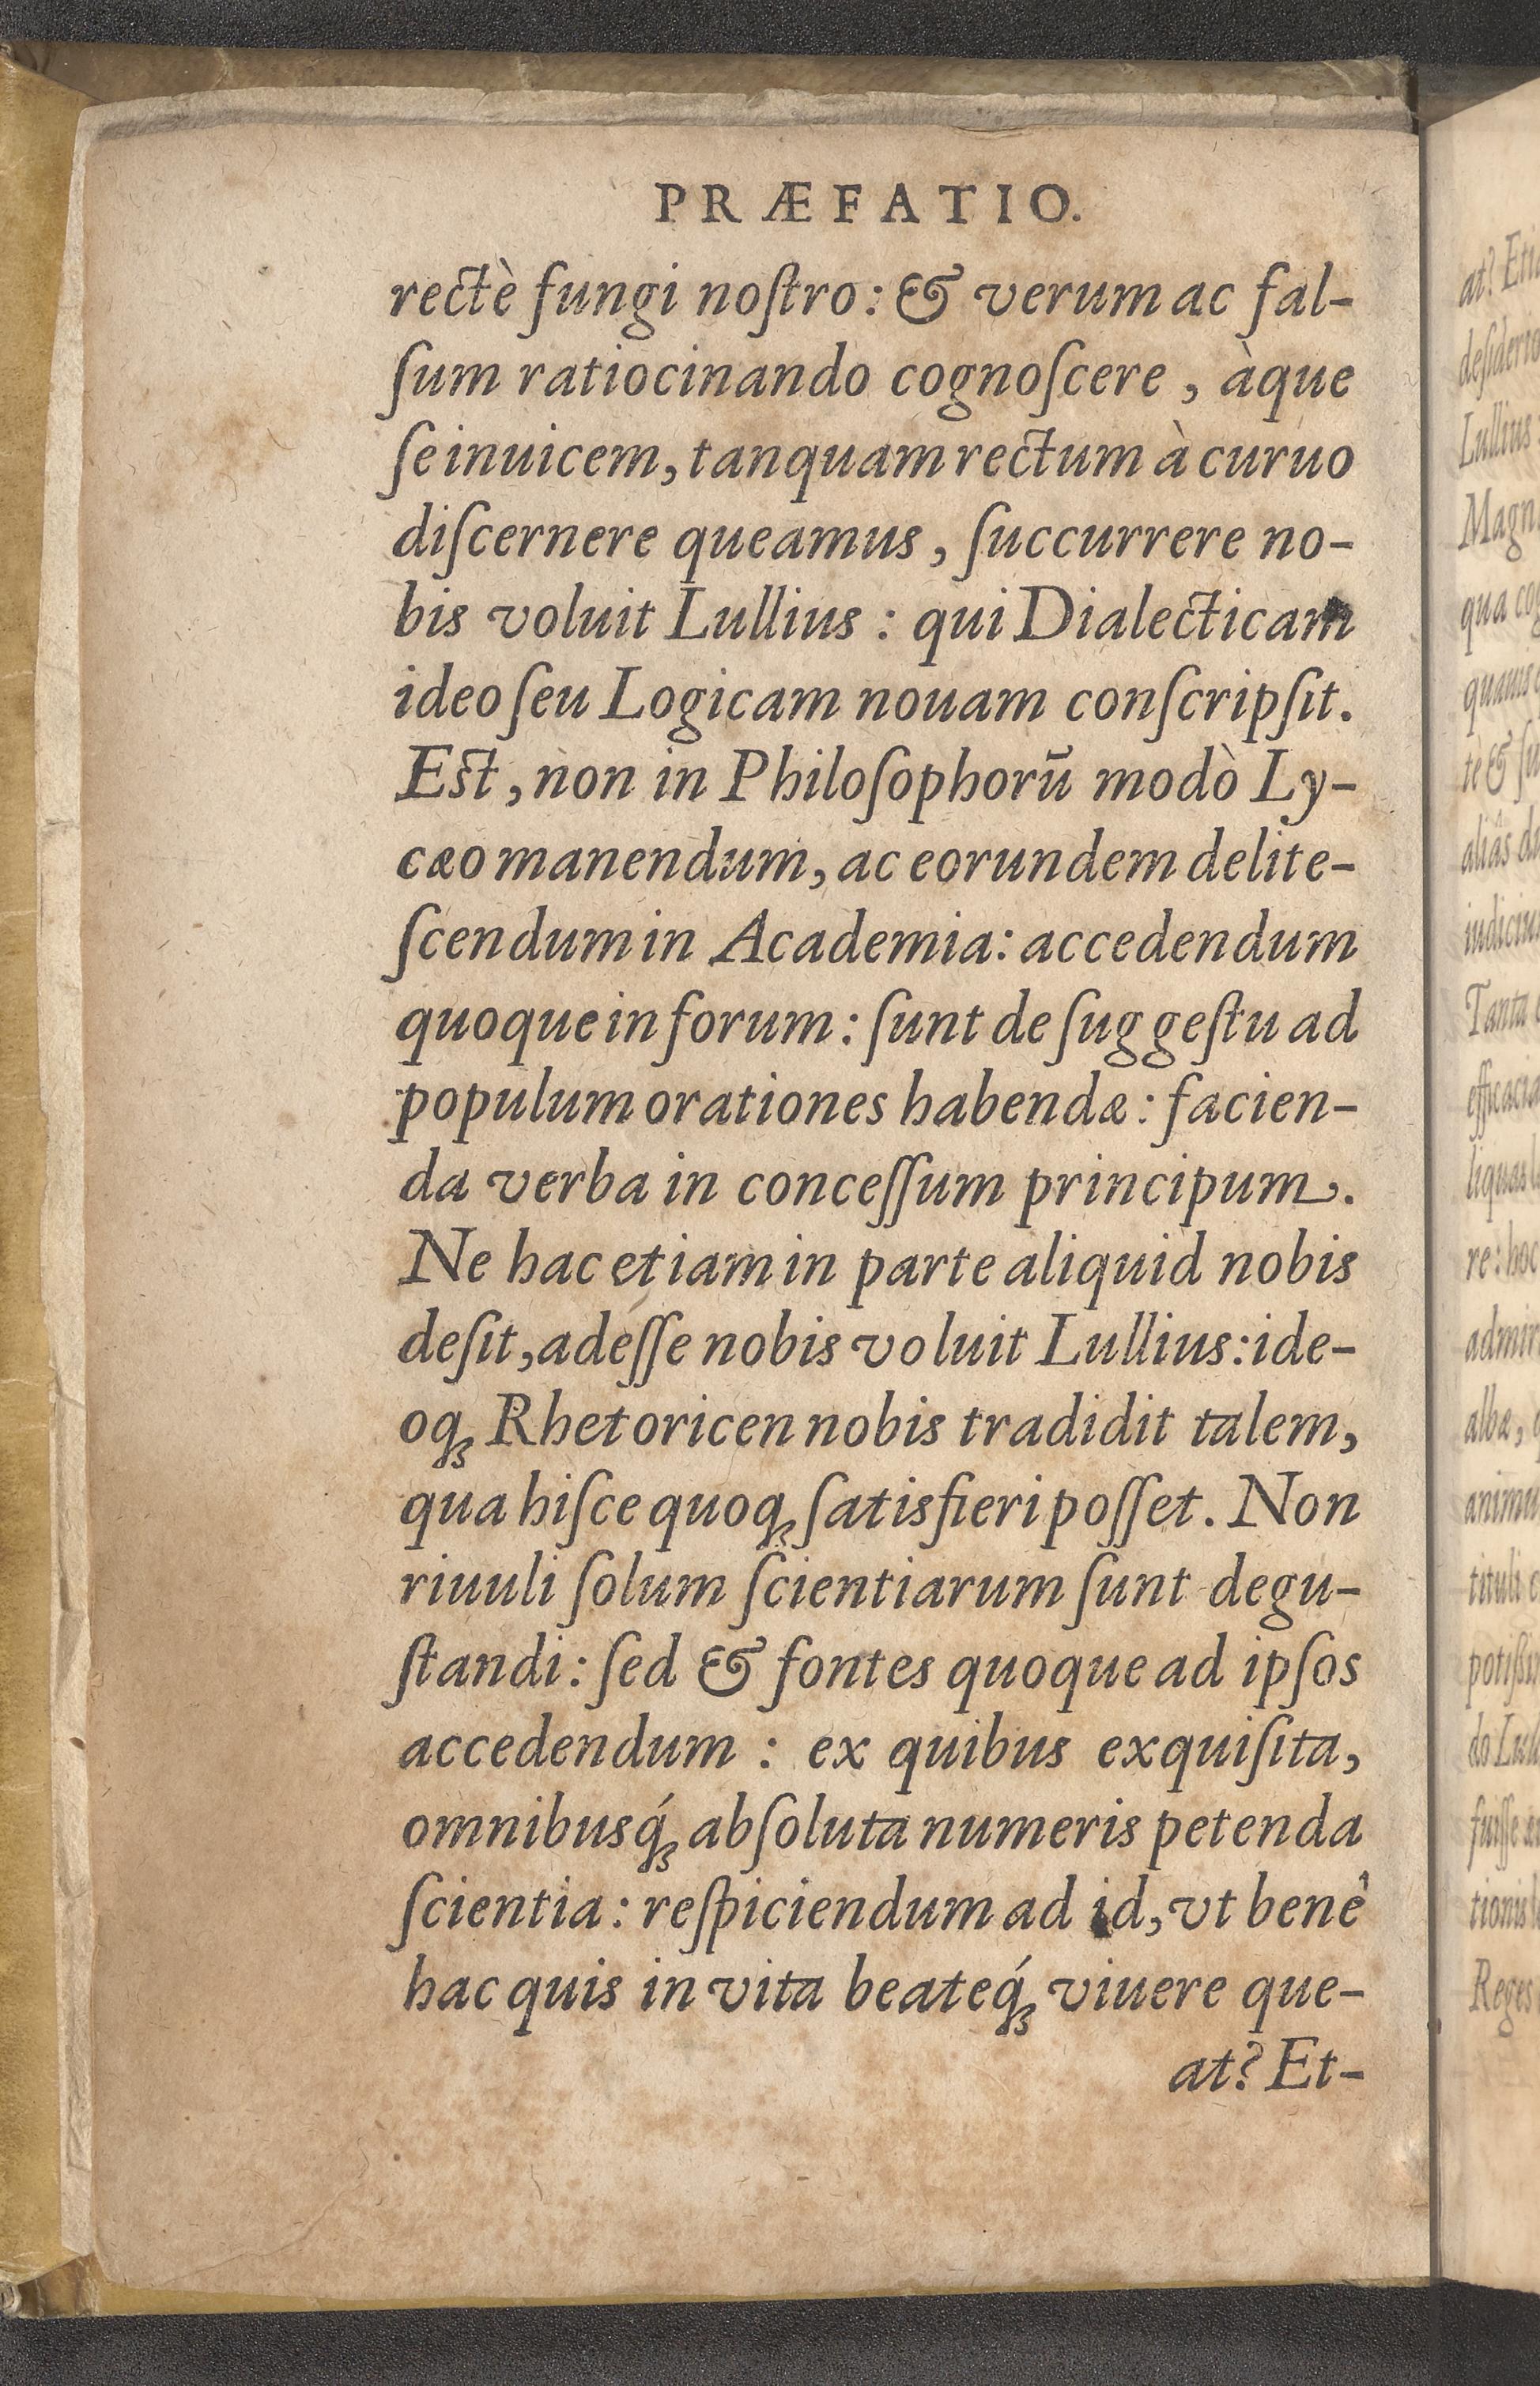 PRÆFATIO.
rectè fungi noſtro: & verum ac fal-
ſum ratiocinando cognoſcere, àque
ſe inuicem, tanquam rectum à curuo
diſcernere queamus, ſuccurrere no-
bis voluit Lullius: qui Dialecticam
ideo ſeu Logicam nouam conſcripſit.
Eſt, non in Philoſophorū modò Ly-
cæo manendum, ac eorundem delite-
ſcendum in Academia: accedendum
quoque in forum: ſunt de ſuggeſtu ad
populum orationes habendæ: facien-
da verba in conceſſum principum.
Ne hac etiam in parte aliquid nobis
deſit, adeſſe nobis voluit Lullius: ide-
oq́ꝫ Rhetoricen nobis tradidit talem,
qua hiſce quoqꝫ ſatisfieri poſſet. Non
riuuli ſolum ſcientiarum ſunt degu-
ſtandi: ſed & fontes quoque ad ipſos
accedendum: ex quibus exquiſita,
omnibusq́ꝫ abſoluta numeris petenda
ſcientia: reſpiciendum ad id, vt benè
hac quis in vita beateq́ꝫ viuere que-
at? Et-
at? Etia
Lullius
Magn
Tanta
re: hoc
albæ,
Reges